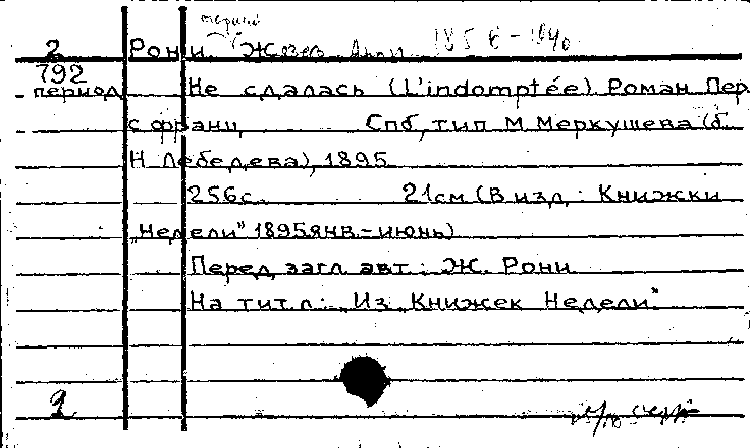 старший
2 Рони, Жозеф Анри 1856-1940
792
период. Не сдалась (L'indomptée). Роман. Пер.
с франц. Спб, тип. М. Меркушева (б.
Н. Лебедева), 1895
256с. 21см (В изд.: Книжки
„Недели" 1895 янв.-июнь)
Перед загл. авт.: Ж. Рони
На тит. л.: „Из „Книжек Недели"